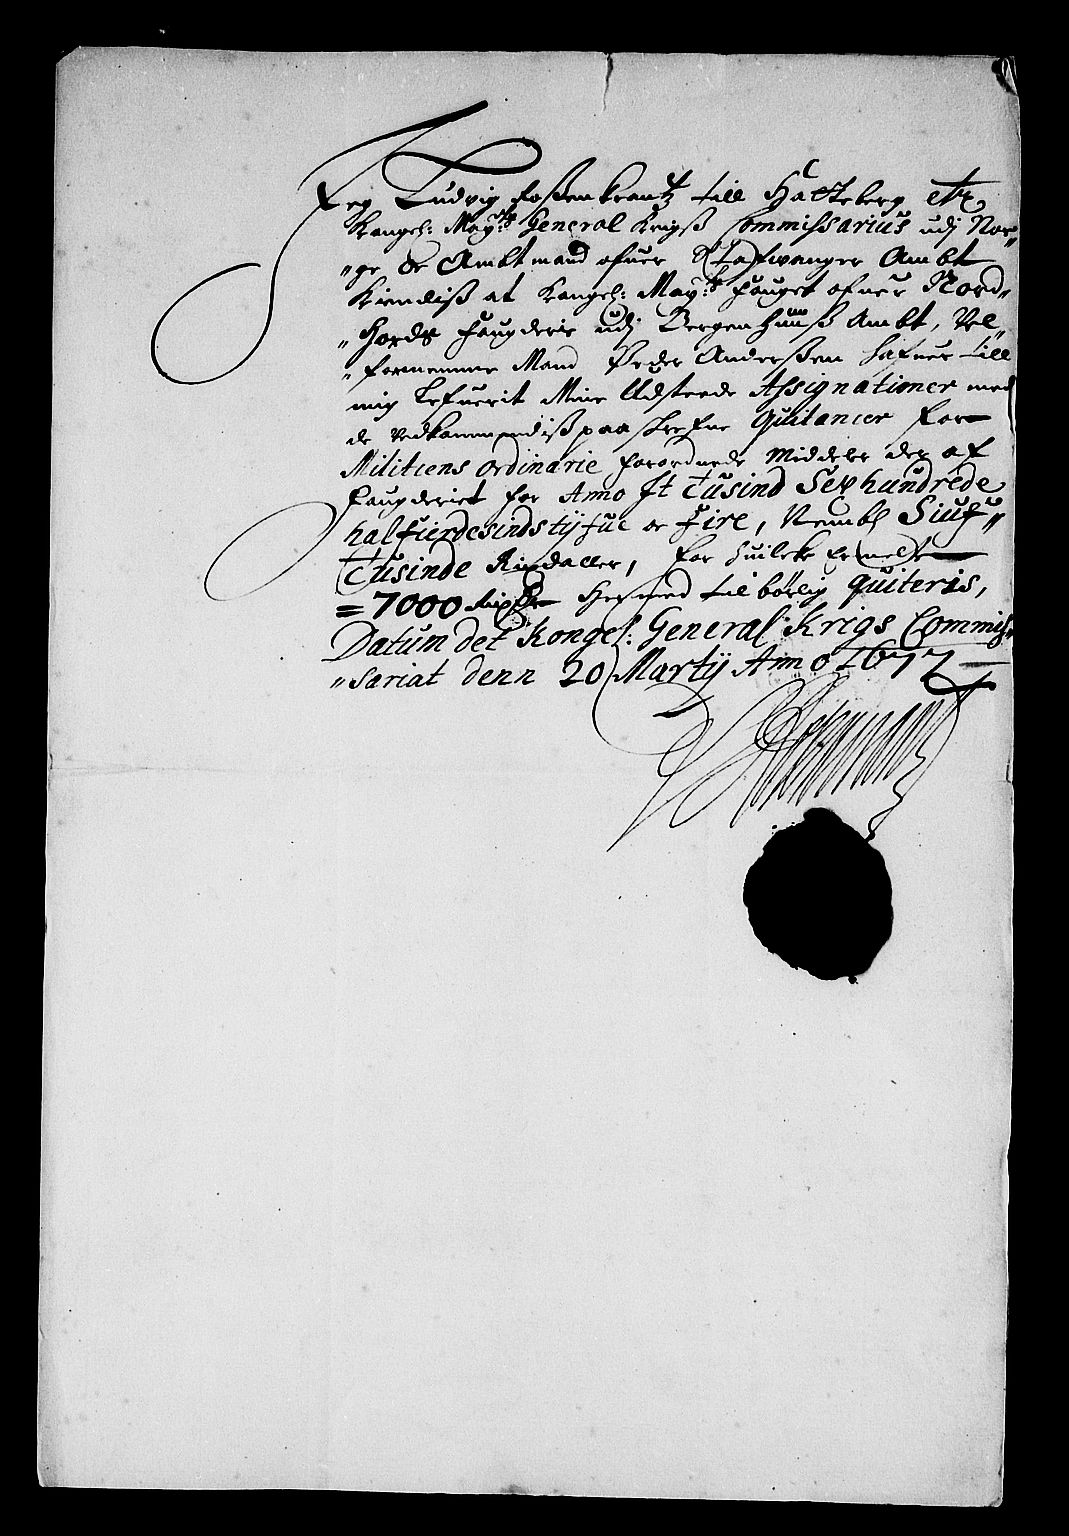 Jeg Ludvig Rossenkrantz till Hatteberg etc
Kongel: May:tts General Krigß Commissarius udj Nor„
„ge oc Ambtmand ofuer Stafwanger Ambt
Kiendiß at Kongel: May:ts Fouget ofuer Nord„
„Hords Fougderie udj Bergenhuuß Ambt, Vel„
„fornemme Mand Peder Anderßen hafuer till
mig lefuerit Mine Udsteede Assignationer med
de vedkommendiß paaskrefne Quitancer for
Militiens ordinarie forordnede Middeler der af
Fougderiet for Anno Jt Tusind Sexhundrede
halfierdesindstÿfue oc Fire, Nembl Siuf„
Tusinde Rixdaller, for huilcke ermelte
=7000 Rixdr hermed tilbørlig quiteris,
Datum det Kongel: General Krigs Commis„
„sariat denn 20 Martÿ Anno 1677